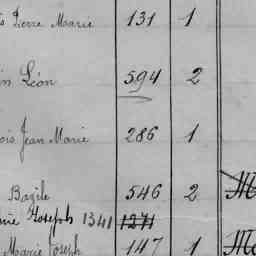 Pierre Marie 131 1
Léon 594 2
Jean Marie 286 1
Bazile 546 2
Joseph 1341 1271
Marie Joseph 147 1